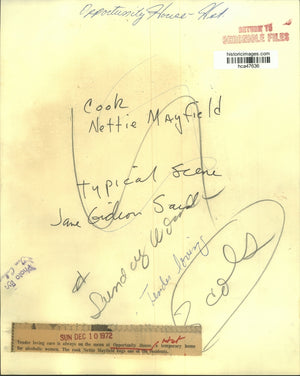 Opportunity House - Hot
RETURN TO
SCHEDULE FILES
historicimages.com
hca47636
Cook
Nettie Mayfield
typical scene
Jane Gideon Said
Sunday Woman
Tender loving
2 cols
Photo By
SUN DEC 10 1972
Tender loving care is always on the menu at Opportunity House, a temporary home
for alcoholic women. The cook Nettie Mayfield hugs one of the residents.